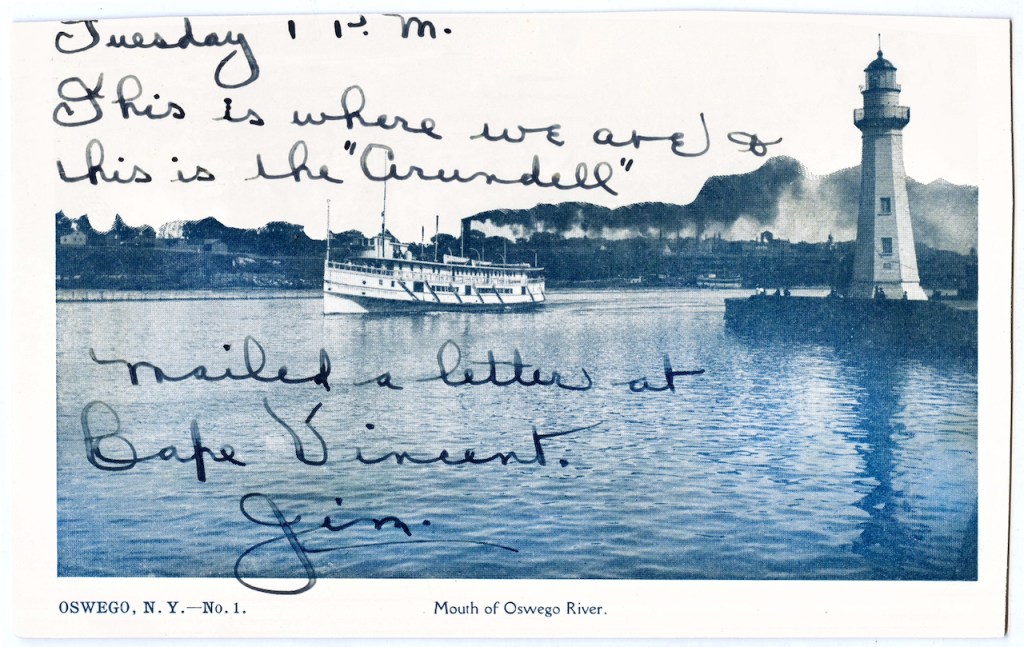 Tuesday 1 P. M.
This is where we are &
this is the "Arundell"
mailed a letter at
Cape Vincent.
Jim.
OSWEGO, N. Y.—No. 1.
Mouth of Oswego River.